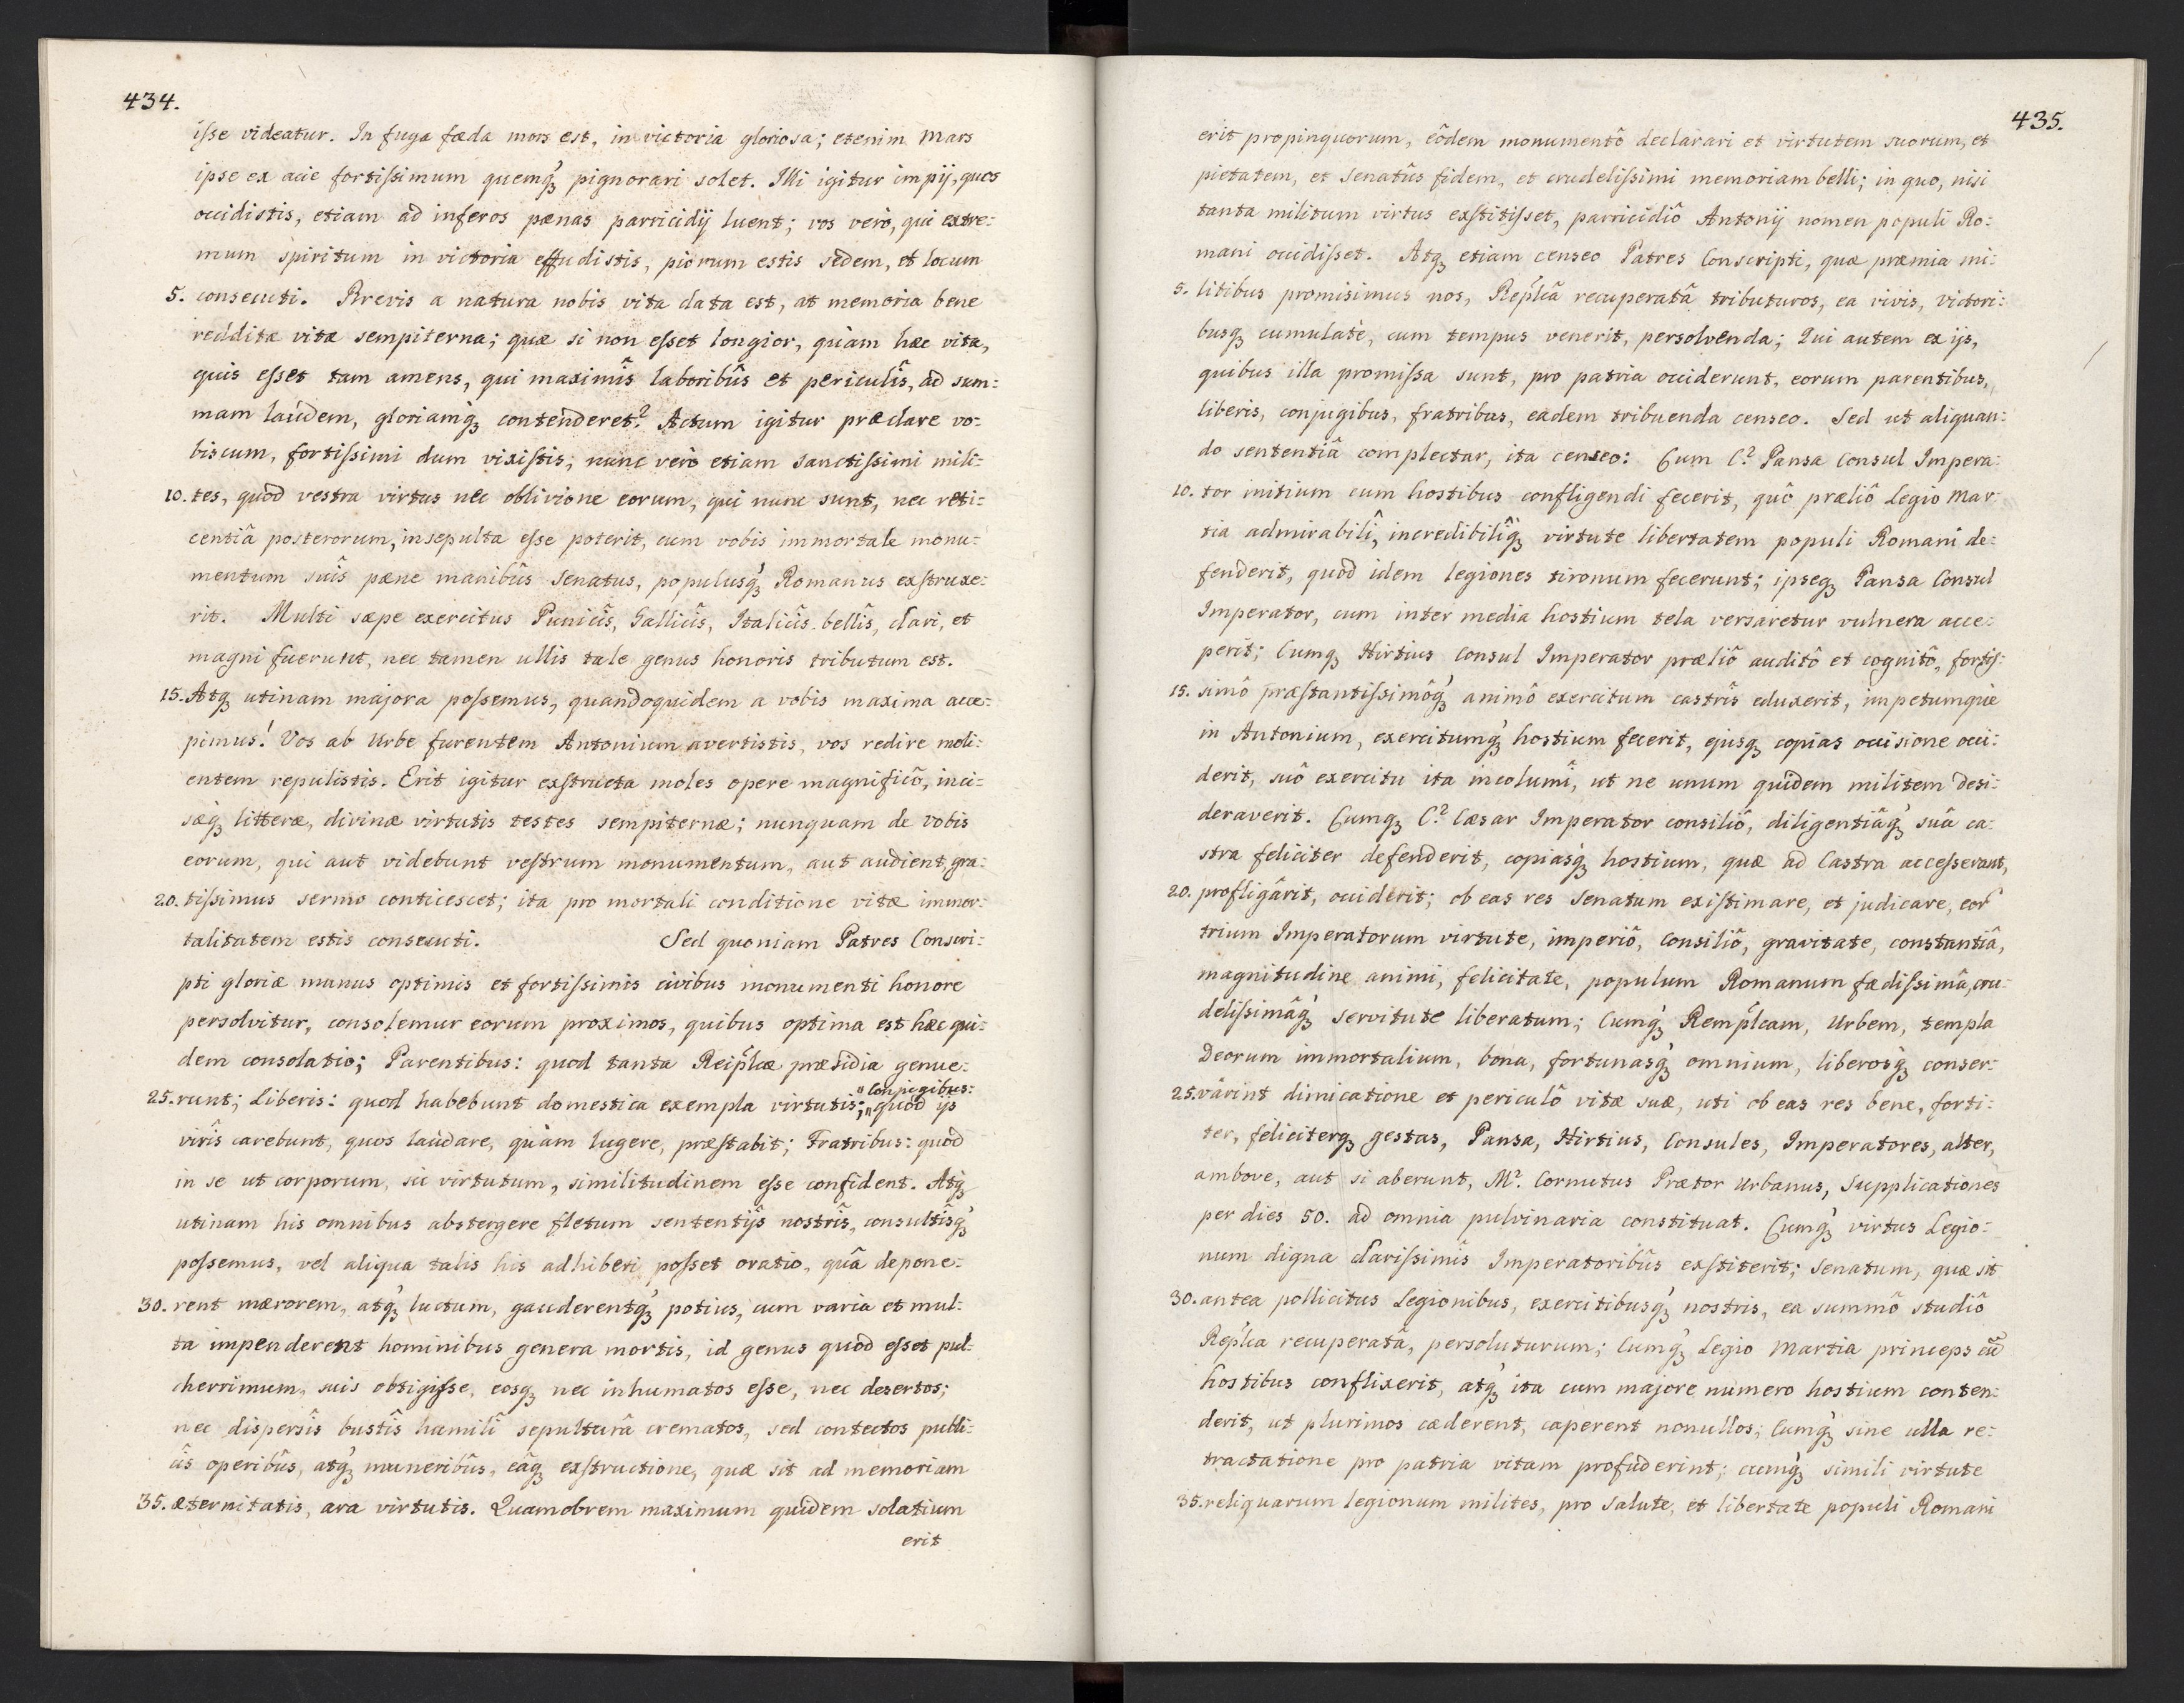 434.
isse videatur. In fuga fæda mors est, in victoria gloriosa; etenim Mars
ipse ex acie fortissimum quemq́ꝫ pignorari solet. Illi igitur impij, quos
occidistis, etiam ad inferos pænas parricidij luent; vos verò, qui extre:
mum spiritum in victoria effudistis, piorum estis sedem, et locum
5. consecuti. Brevis a natura nobis vita data est, at memoria bene
redditæ vitæ sempiterna; quæ si non esset longior, quàm hæc vita,
quis esset tam amens, qui maximîs laboribûs et periculîs, ad sum:
mam laudem, gloriamq́ꝫ contenderet? Actum igitur præclare vo:
biscum, fortissimi dum vixistis; nunc verò etiam sanctissimi mili:
10. tes, quòd vestra virtus nec oblivione eorum, qui nunc sunt, nec reti:
centiâ posterorum, insepulta esse poterit, cum vobis immortale monu:
mentum suîs pæne manibûs Senatus, populusq́ꝫ Romanus exstruxe:
rit. Multi sæpe exercitus Punicîs, Gallicîs, Italicîs bellîs, clari, et
magni fuerunt, nec tamen ullis tale genus honoris tributum est.
15. Atqꝫ utinam majora possemus, quandoquidem a vobis maxima acce:
pimus! Vos ab Urbe furentem Antonium avertistis, vos redire moli:
entem repulistis. Erit igitur exstructa moles opere magnificô, inci:
sæq́ꝫ litteræ, divinæ virtutis testes sempiternæ; nunquam de vobis
eorum, qui aut videbunt vestrum monumentum, aut audient, gra:
20. tissimus sermo conticescet; ita pro mortali conditione vitæ immor:
talitatem estis consecuti. Sed quoniam Patres Conscri:
pti gloriæ munus optimis et fortissimis civibus monumenti honore
persolvitur, consolemur eorum proximos, quibus optima est hæc qui:
dem consolatio; Parentibus: quod tanta Reip̃lcæ præsidia genue:
"Conjugibus:
25. runt; Liberis: quod habebunt domestica exempla virtutis; "quòd ijs
virîs carebunt, quos laudare, quàm lugere, præstabit; Fratribus: quòd
in se ut corporum, sic virtutum, similitudinem esse confident. Atqꝫ
utinam his omnibus abstergere fletum sententijs nostrîs, consultîsq́ꝫ
possemus, vel aliqua talis his adhiberi posset oratio, quâ depone:
30. rent mærorem, atq́ꝫ luctum, gauderentq́ꝫ potius, cum varia et mul:
ta impenderent hominibus genera mortis, id genus quòd esset pul:
cherrimum, suis obtigisse, eosqꝫ nec inhumatos esse, nec desertos;
nec dispersîs bustîs humilî sepulturâ crematos, sed contectos publi:
cîs operibûs, atq́ꝫ muneribûs, eâqꝫ exstructione, quæ sit ad memoriam
35. æternitatis, ara virtutis. Quamobrem maximum quidem solatium
erit
435.
erit propinquorum, eôdem monumentô declarari et virtutem suorum, et
pietatem, et Senatûs fidem, et crudelissimi memoriam belli; in quo, nisi
tanta militum virtus exstitisset, parricidiô Antonij nomen populi Ro:
mani occidisset. Atqꝫ etiam censeo Patres Conscripti, quæ præmia mi:
5. litibus promisimus nos, Rep̃lcâ recuperatâ tributuros, ea vivis, victori:
busqꝫ cumulatè, cum tempus venerit, persolvenda; Qui autem ex ijs,
quibus illa promissa sunt, pro patria occiderunt, eorum parentibus,
liberis, conjugibus, fratribus, eadem tribuenda censeo. Sed ut aliquan:
do sententiâ complectar, ita censeo: Cum C? Pansa Consul Impera:
10. tor initium cum hostibus confligendi fecerit, quô præliô Legio Mar:
tia admirabilî, incredibilîq́ꝫ virtute libertatem populi Romani de:
fenderit, quòd idem legiones tironum fecerunt; ipseqꝫ Pansa Consul
Imperator, cum inter media hostium tela versaretur vulnera acce:
perit; Cumqꝫ Hirtius Consul Imperator præliô auditô et cognitô, fortis:
15. simô præstantissimôq́ꝫ animô exercitum castrîs eduxerit, impetumque
in Antonium, exercitumq́ꝫ hostium fecerit, ejusqꝫ copias occisione occi:
derit, suô exercitu ita incolumî, ut ne unum quidem militem desi:
deraverit. Cumqꝫ C? Cæsar Imperator consiliô, diligentiâq́ꝫ suâ ca:
stra feliciter defenderit, copiasq́ꝫ hostium, quæ ad Castra accesserant,
20. profligârit, occiderit; ob eas res Senatum existimare, et judicare, eor̃
trium Imperatorum virtute, imperiô, consiliô, gravitate, constantiâ,
magnitudine animi, felicitate, populum Romanum fædissimâ, cru:
delissimâq́ꝫ servitute liberatum; Cumq́ꝫ Remp̃lcam, Urbem, templa
Deorum immortalium, bona, fortunasq́ꝫ omnium, liberosq́ꝫ conser:
25. vârint dimicatione et periculô vitæ suæ, uti ob eas res bene, forti:
ter, feliciterqꝫ gestas, Pansa, Hirtius, Consules, Imperatores, alter,
ambove, aut si aberunt, M?. Cornutus Prætor Urbanus, Supplicationes
per dies 50. ad omnia pulvinaria constituat. Cumq́ꝫ virtus Legio:
num digna clarissimîs Imperatoribûs exstiterit; Senatum, quæ sit
30. antea pollicitus Legionibus, exercitibusq́ꝫ nostris, ea summô studiô
Rep̃lca recuperatâ, persoluturum; Cumq́ꝫ Legio Martia princeps cũ
hostibus conflixerit, atq́ꝫ ita cum majore numero hostium conten:
derit, ut plurimos cæderent, caperent nonullos; Cumq́ꝫ sine ulla re:
tractatione pro patria vitam profuderint; cumq́ꝫ simili virtute
35. reliquarum legionum milites, pro salute, et libertate populi Romani